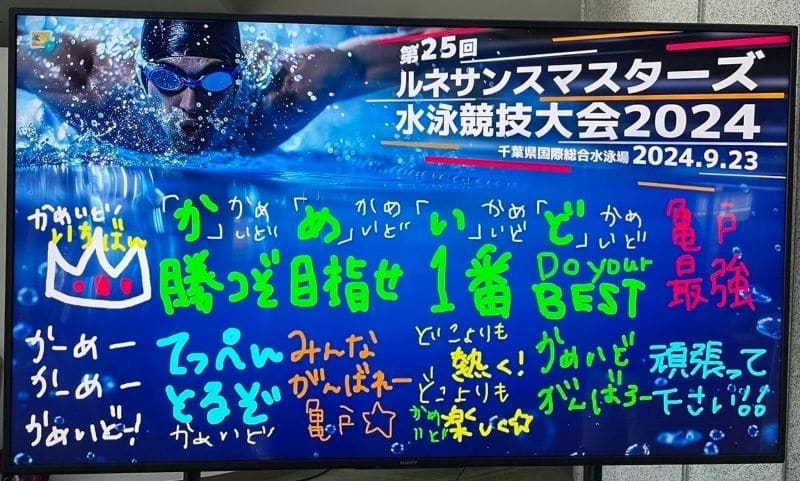 第25回
ルネサンスマスターズ
水泳競技大会2024
千葉県国際総合水泳場 2024.9.23
かめいど!
いちばん
「か」かめいど
「め」かめいど
「い」かめいど
「ど」かめいど
勝つぞ
目指せ
1番
Do your
BEST
亀戸
最強
かーめー
かーめー
かめいどー!
てっぺん
とるぞ
かめいど
みんな
がんばれー
亀戸☆
どこよりも
熱く!
どこよりも
楽しく☆
かめいど
かめいど
がんばろー
頑張って
下さい!!
SONY